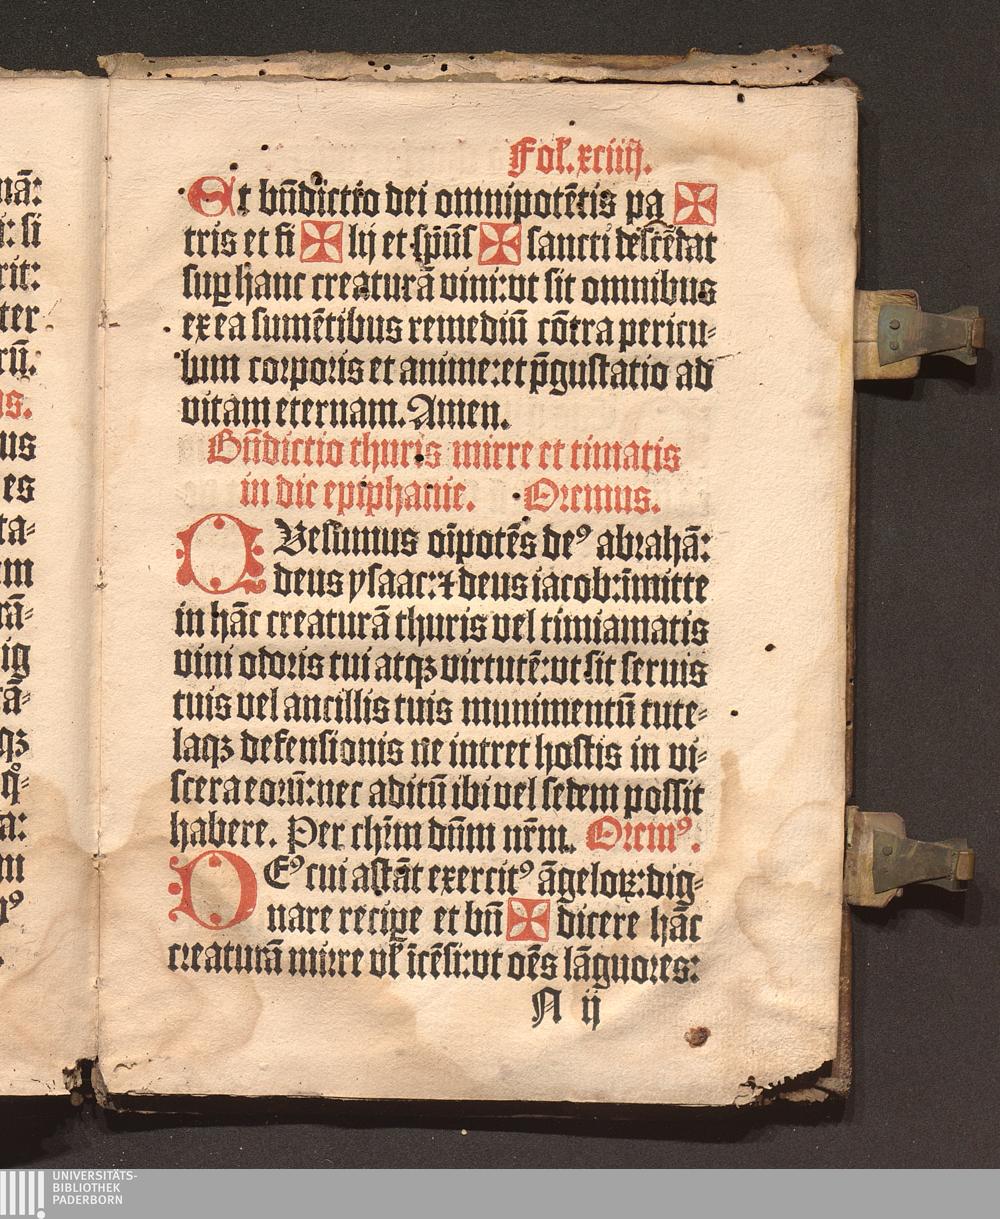 nā:
: si
rit:
ter
rū.
us.
us
es
ta-
m
rā-
ig
rā-
qꝫ
q̊-
a:
m
pꝰ
Fol. xciiij.
Et bn̄dictio dei omnipotētis pa ✠
tris et fi ✠ lij et sp̄ūs ✠ sancti descēdat
suꝑ hanc creaturā vini: vt sit omnibus
ex ea sumētibus remediū cōtra pericu-
lum corporis et anime: et p̄gustatio ad
vitam eternam. Amen.
Bn̄dictio thuris mirre et timatis
in die epiphanie. Oremus.
QVesumus oīpotēs deꝰ abrahā:
deus ysaac: ⁊ deus iacob: īmitte
in hāc creaturā thuris vel timiamatis
vini odoris tui atqꝫ virtutē: vt sit seruis
tuis vel ancillis tuis munimentū tute-
laqꝫ defensionis ne intret hostis in vi-
scera eorū: nec aditū ibi vel sedem possit
habere. Per chr̄m dn̄m nr̄m. Oremꝰ.
DEꝰ cui astāt exercitꝰ āgeloꝝ: dig-
nare recipe et bn̄ ✠ dicere hāc
creaturā mirre vl̄ īcēsi: vt oēs lāguores:
N ij
UNIVERSITÄTS-
BIBLIOTHEK
PADERBORN